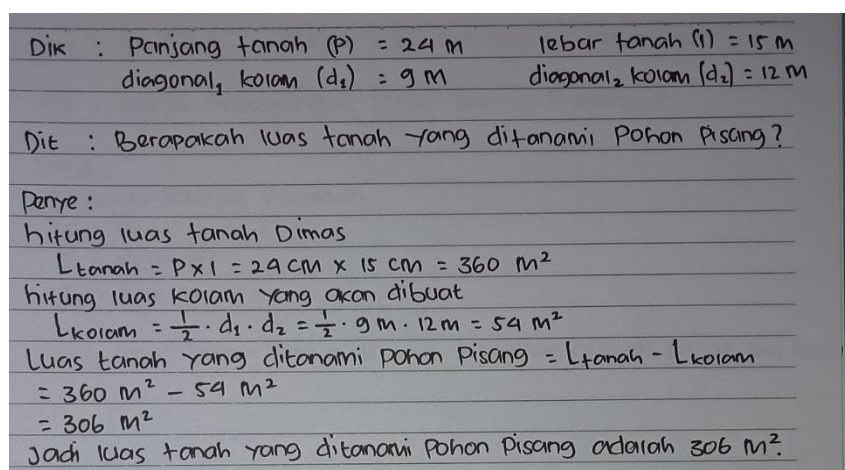 Dik : Panjang tanah (P) = 24 m lebar tanah (l) = 15 m
diagonal₁ kolam (d₁) = 9 m diagonal₂ kolam (d₂) = 12 m
Dit : Berapakah luas tanah yang ditanami Pohon Pisang?
Penye :
hitung luas tanah Dimas
Ltanah = P x l = 24 cm x 15 cm = 360 m²
hitung luas kolam yang akan dibuat
Lkolam = 1/2 · d₁ · d₂ = 1/2 · 9 m · 12 m = 54 m²
Luas tanah yang ditanami Pohon Pisang = Ltanah - Lkolam
= 360 m² - 54 m²
= 306 m²
Jadi luas tanah yang ditanami Pohon Pisang adalah 306 m².